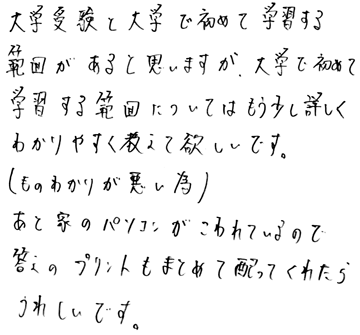 大学受験と大学で初めて学習する
範囲があると思いますが、大学で初めて
学習する範囲についてはもう少し詳しく
わかりやすく教えて欲しいです。
(ものわかりが悪い為)
あと家のパソコンがこわれているので
答えのプリントもまとめて配ってくれたら
うれしいです。